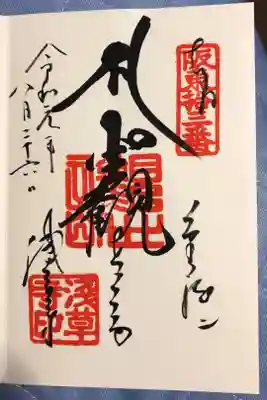 奉拝
阪東拾三番
金龍山
聖観世音
浅草寺
浅草寺印
令和元年
八月二十六日